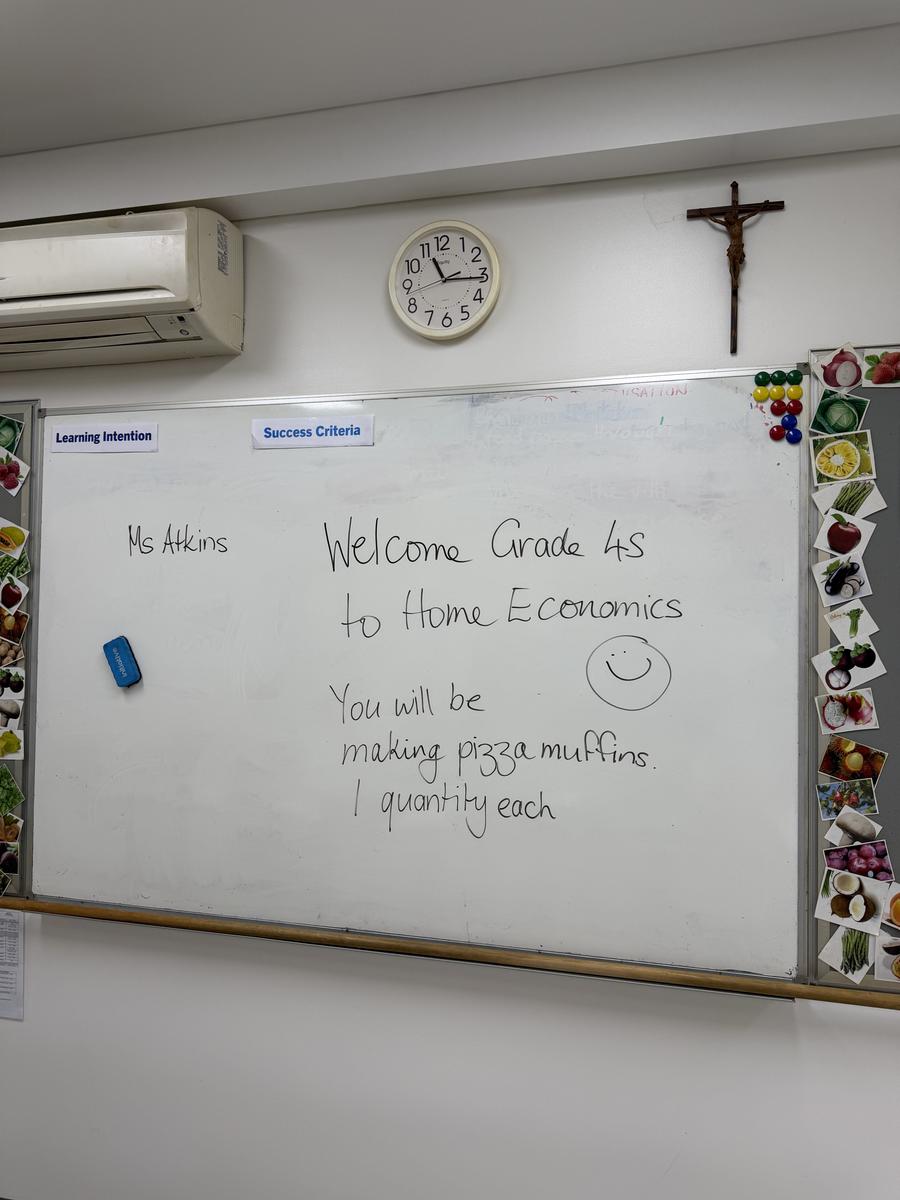 12
1
2
3
4
5
6
7
8
9
10
11
Learning Intention
Success Criteria
Ms Atkins
Welcome Grade 4s
to Home Economics
initiative
You will be
making pizza muffins.
1 quantity each